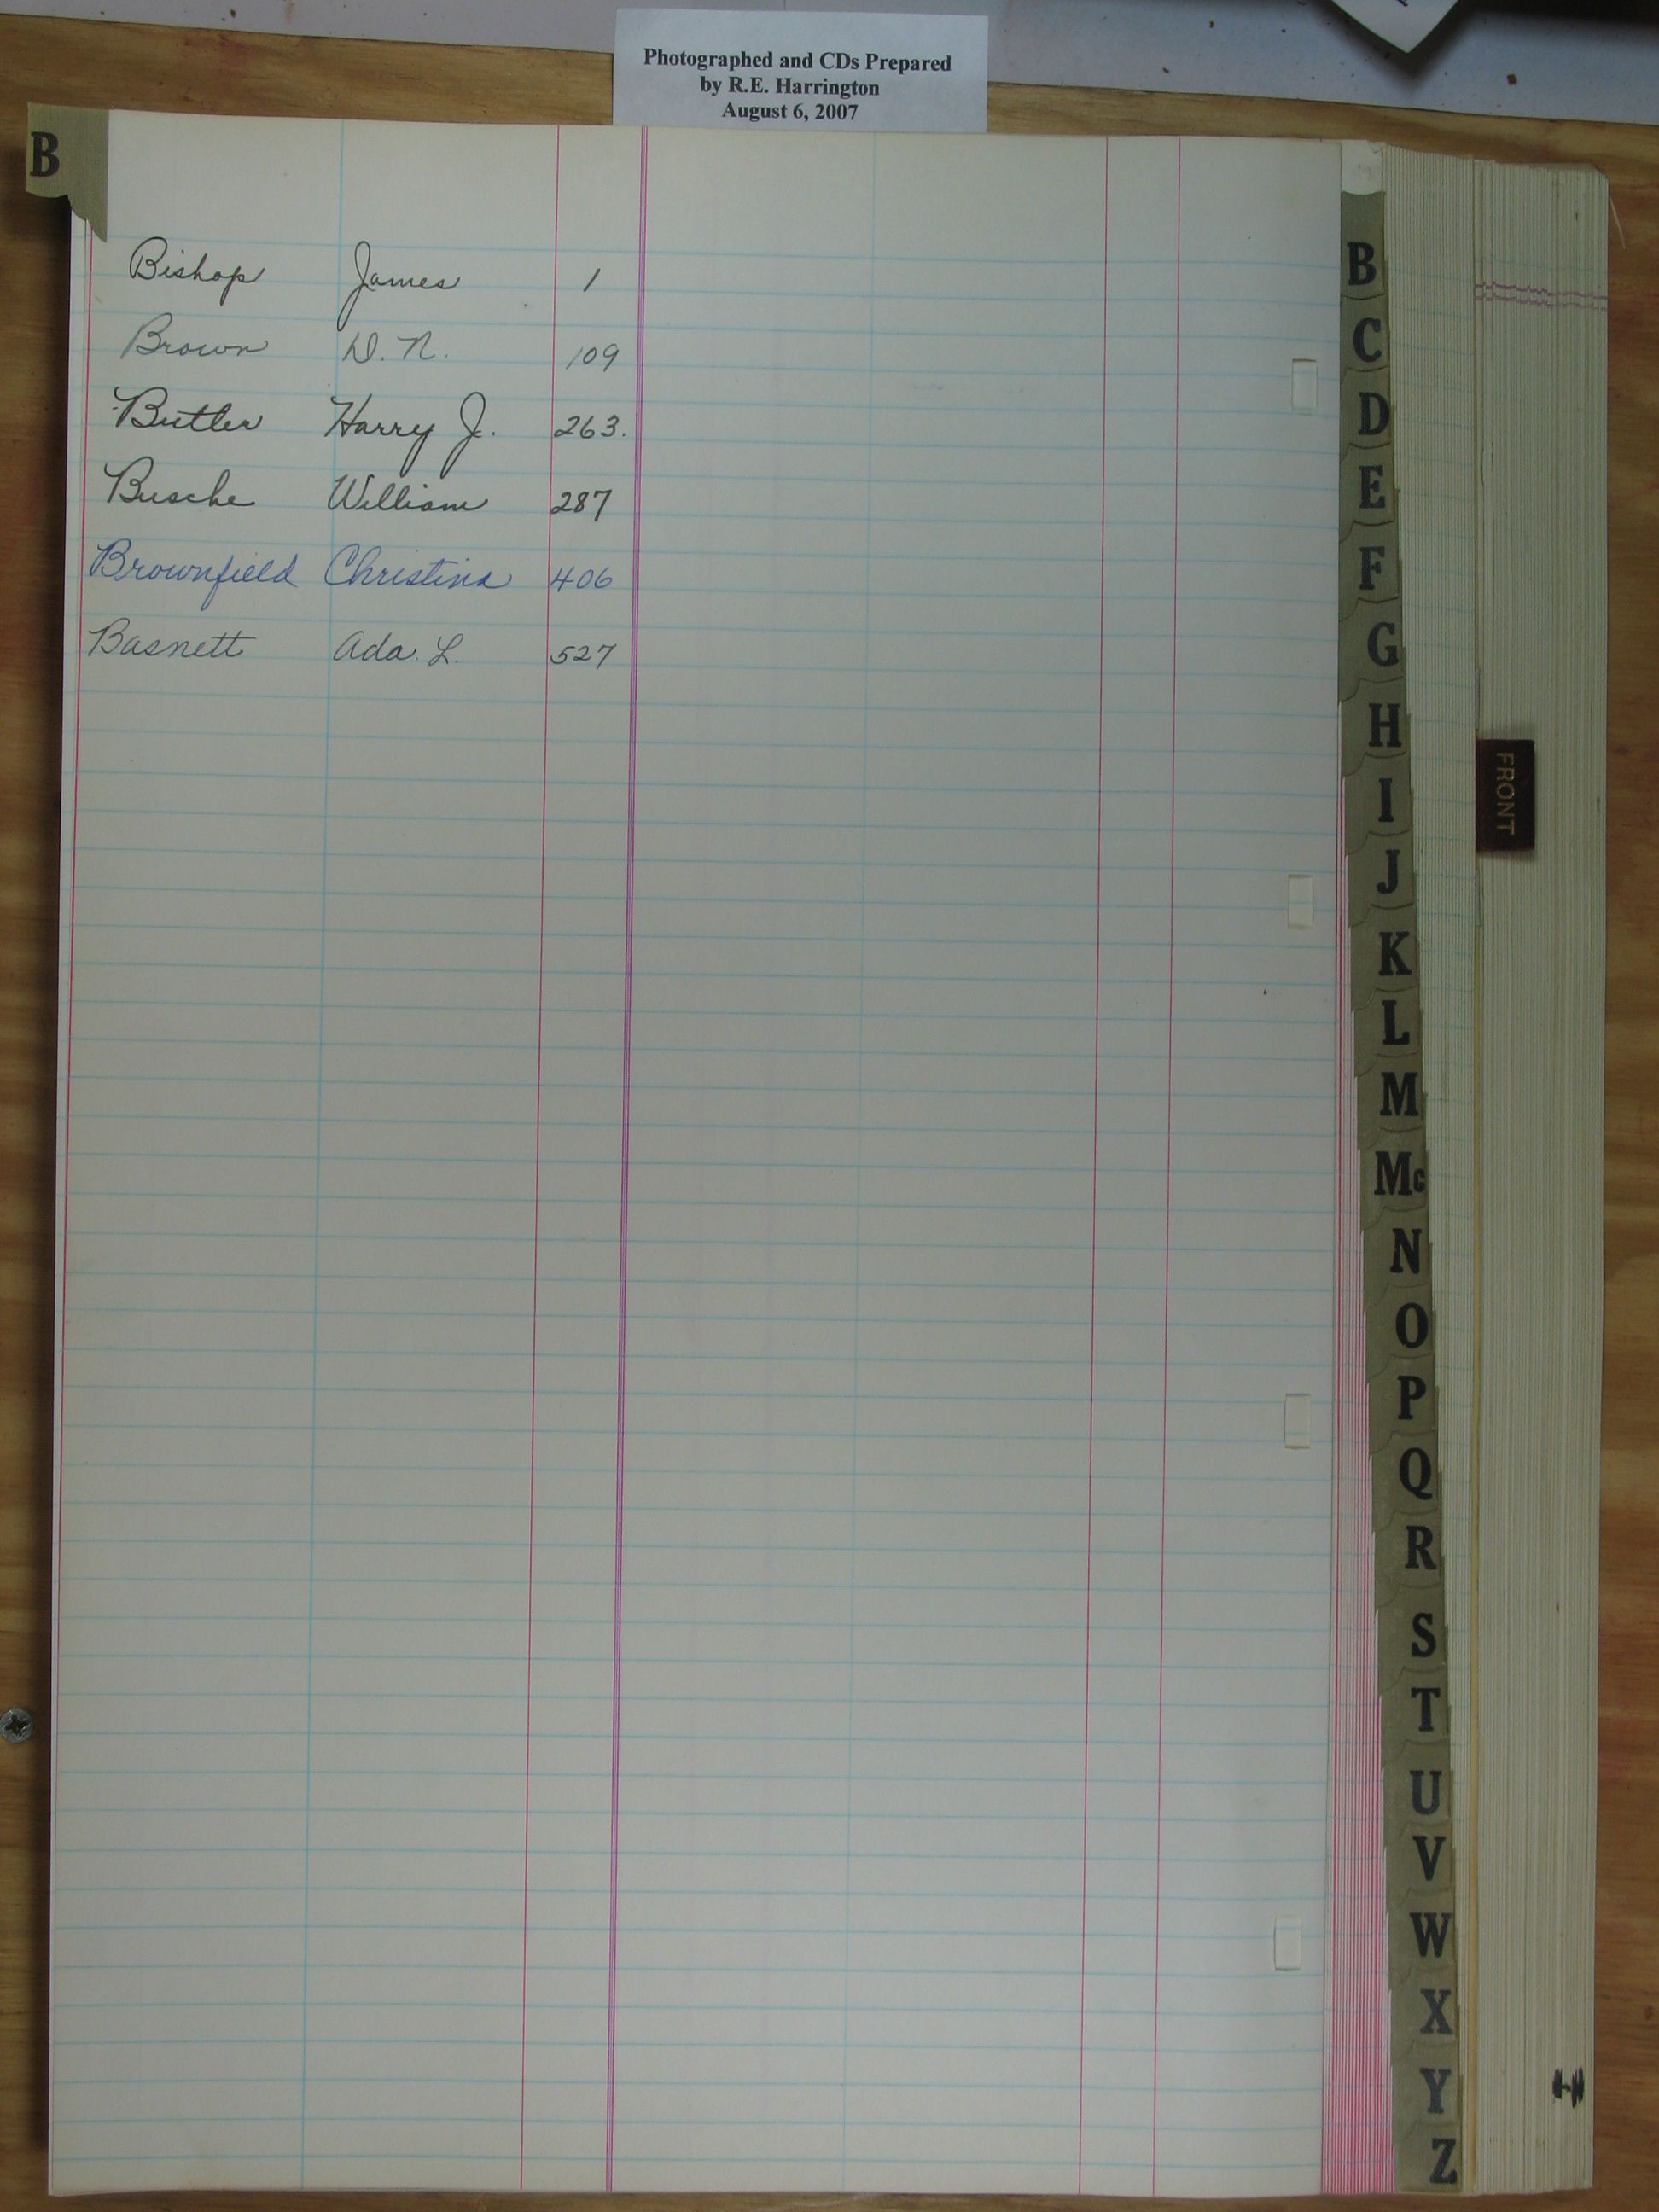 Photographed and CDs Prepared
by R.E. Harrington
August 6, 2007
B
Bishop James 1
Brown D. N. 109
Butler Harry J. 263.
Busche William 287
Brownfield Christina 406
Basnett Ada. L. 527
B
C
D
E
F
G
H
I
J
K
L
M
Mc
N
O
P
Q
R
S
T
U
V
W
X
Y
Z
FRONT